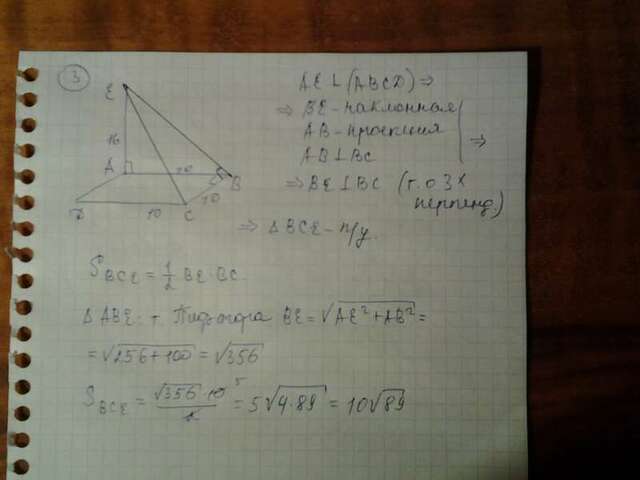 3
E
16
A
10
B
10
D
10
C
AE ⊥ (ABCD) ⇒
⇒ BE - наклонная
AB - проекция
AB ⊥ BC
⇒
⇒ BE ⊥ BC (т. о 3х
перпенд.)
⇒ Δ BCE - п/у.
S BCE = 1/2 BE · BC
Δ ABE: т Пифагора BE = √(AE² + AB²) =
= √(256 + 100) = √356
S BCE = (√356 · 10 5)/2 = 5√(4·89) = 10√89